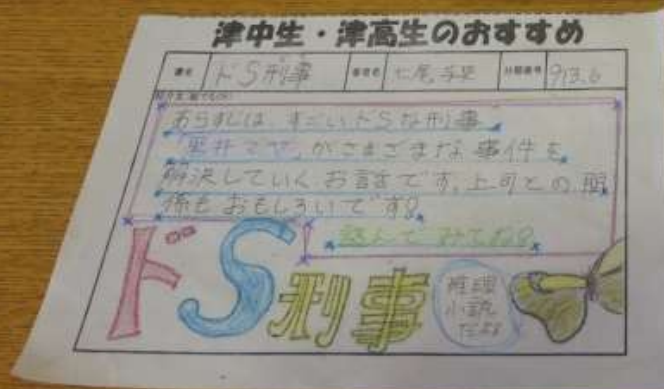 津中生・津高生のおすすめ
書名 ドS刑事 著者名 七尾与史 分類番号 913.6
あらすじは、すごいドSな刑事
「黒井マヤ」がさまざまな事件を
解決していくお話です。上司との関
係もおもしろいです!
読んでみてね!
ドS刑事
推理
小説
だよ